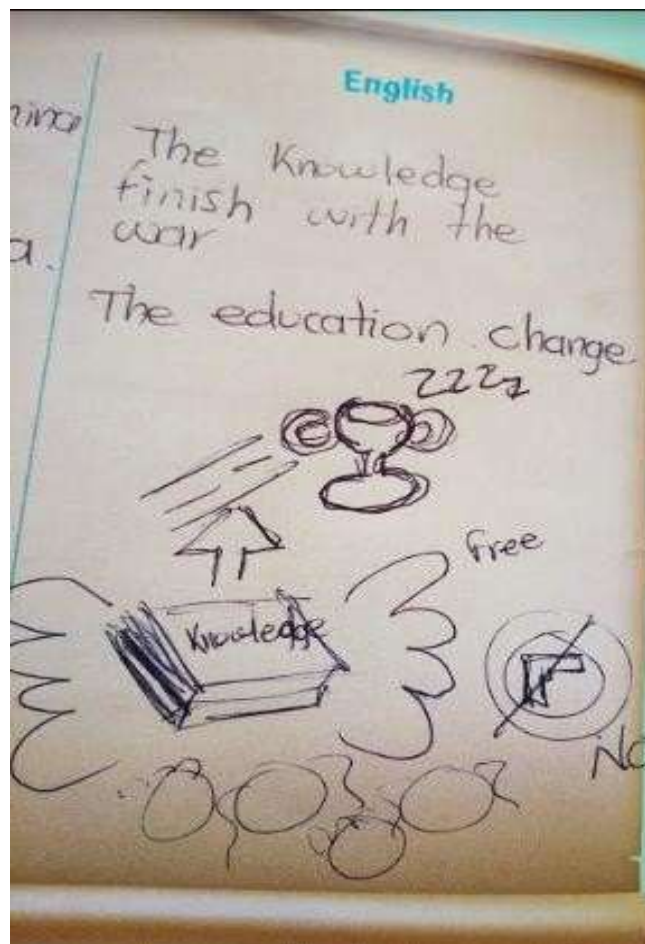 English
The Knowledge
finish with the
war
The education change
zzzz
Free
Knowledge
No